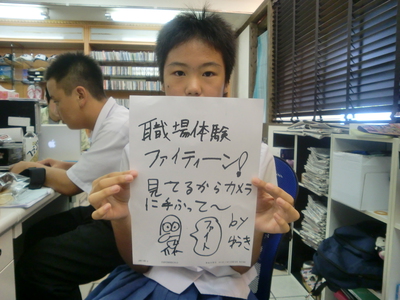 職場体験
ファイティーン!
見てるからカメラ
に手ふって〜
by
ゆうき